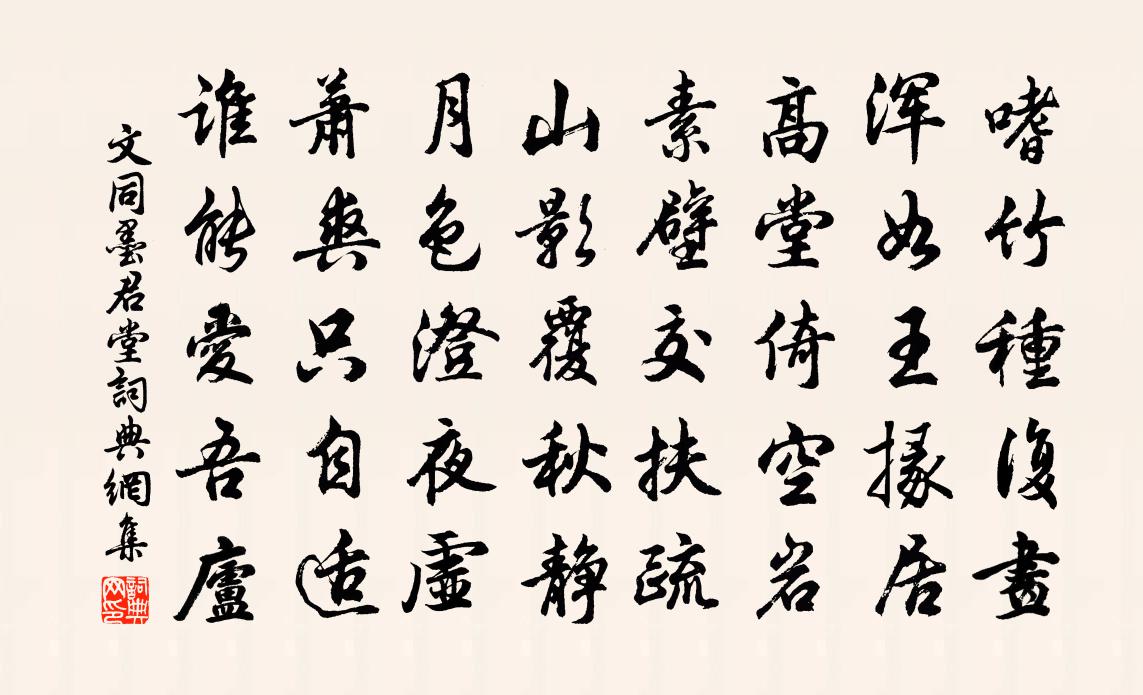 嗜竹種復畫
浑如王掾居
高堂倚空岩
素壁交扶疏
山影覆秋静
月色澄夜虛
萧爽只自适
谁能愛吾廬
文同墨君堂詞典網集
詞典網印